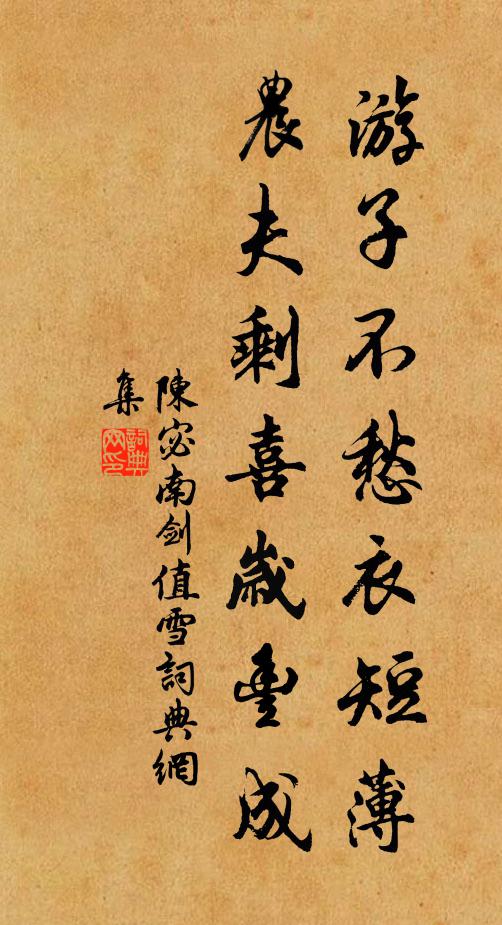 游子不愁衣短薄
農夫剩喜歲豐成
陳宓南劍值雪詞典網
集
詞典
网印